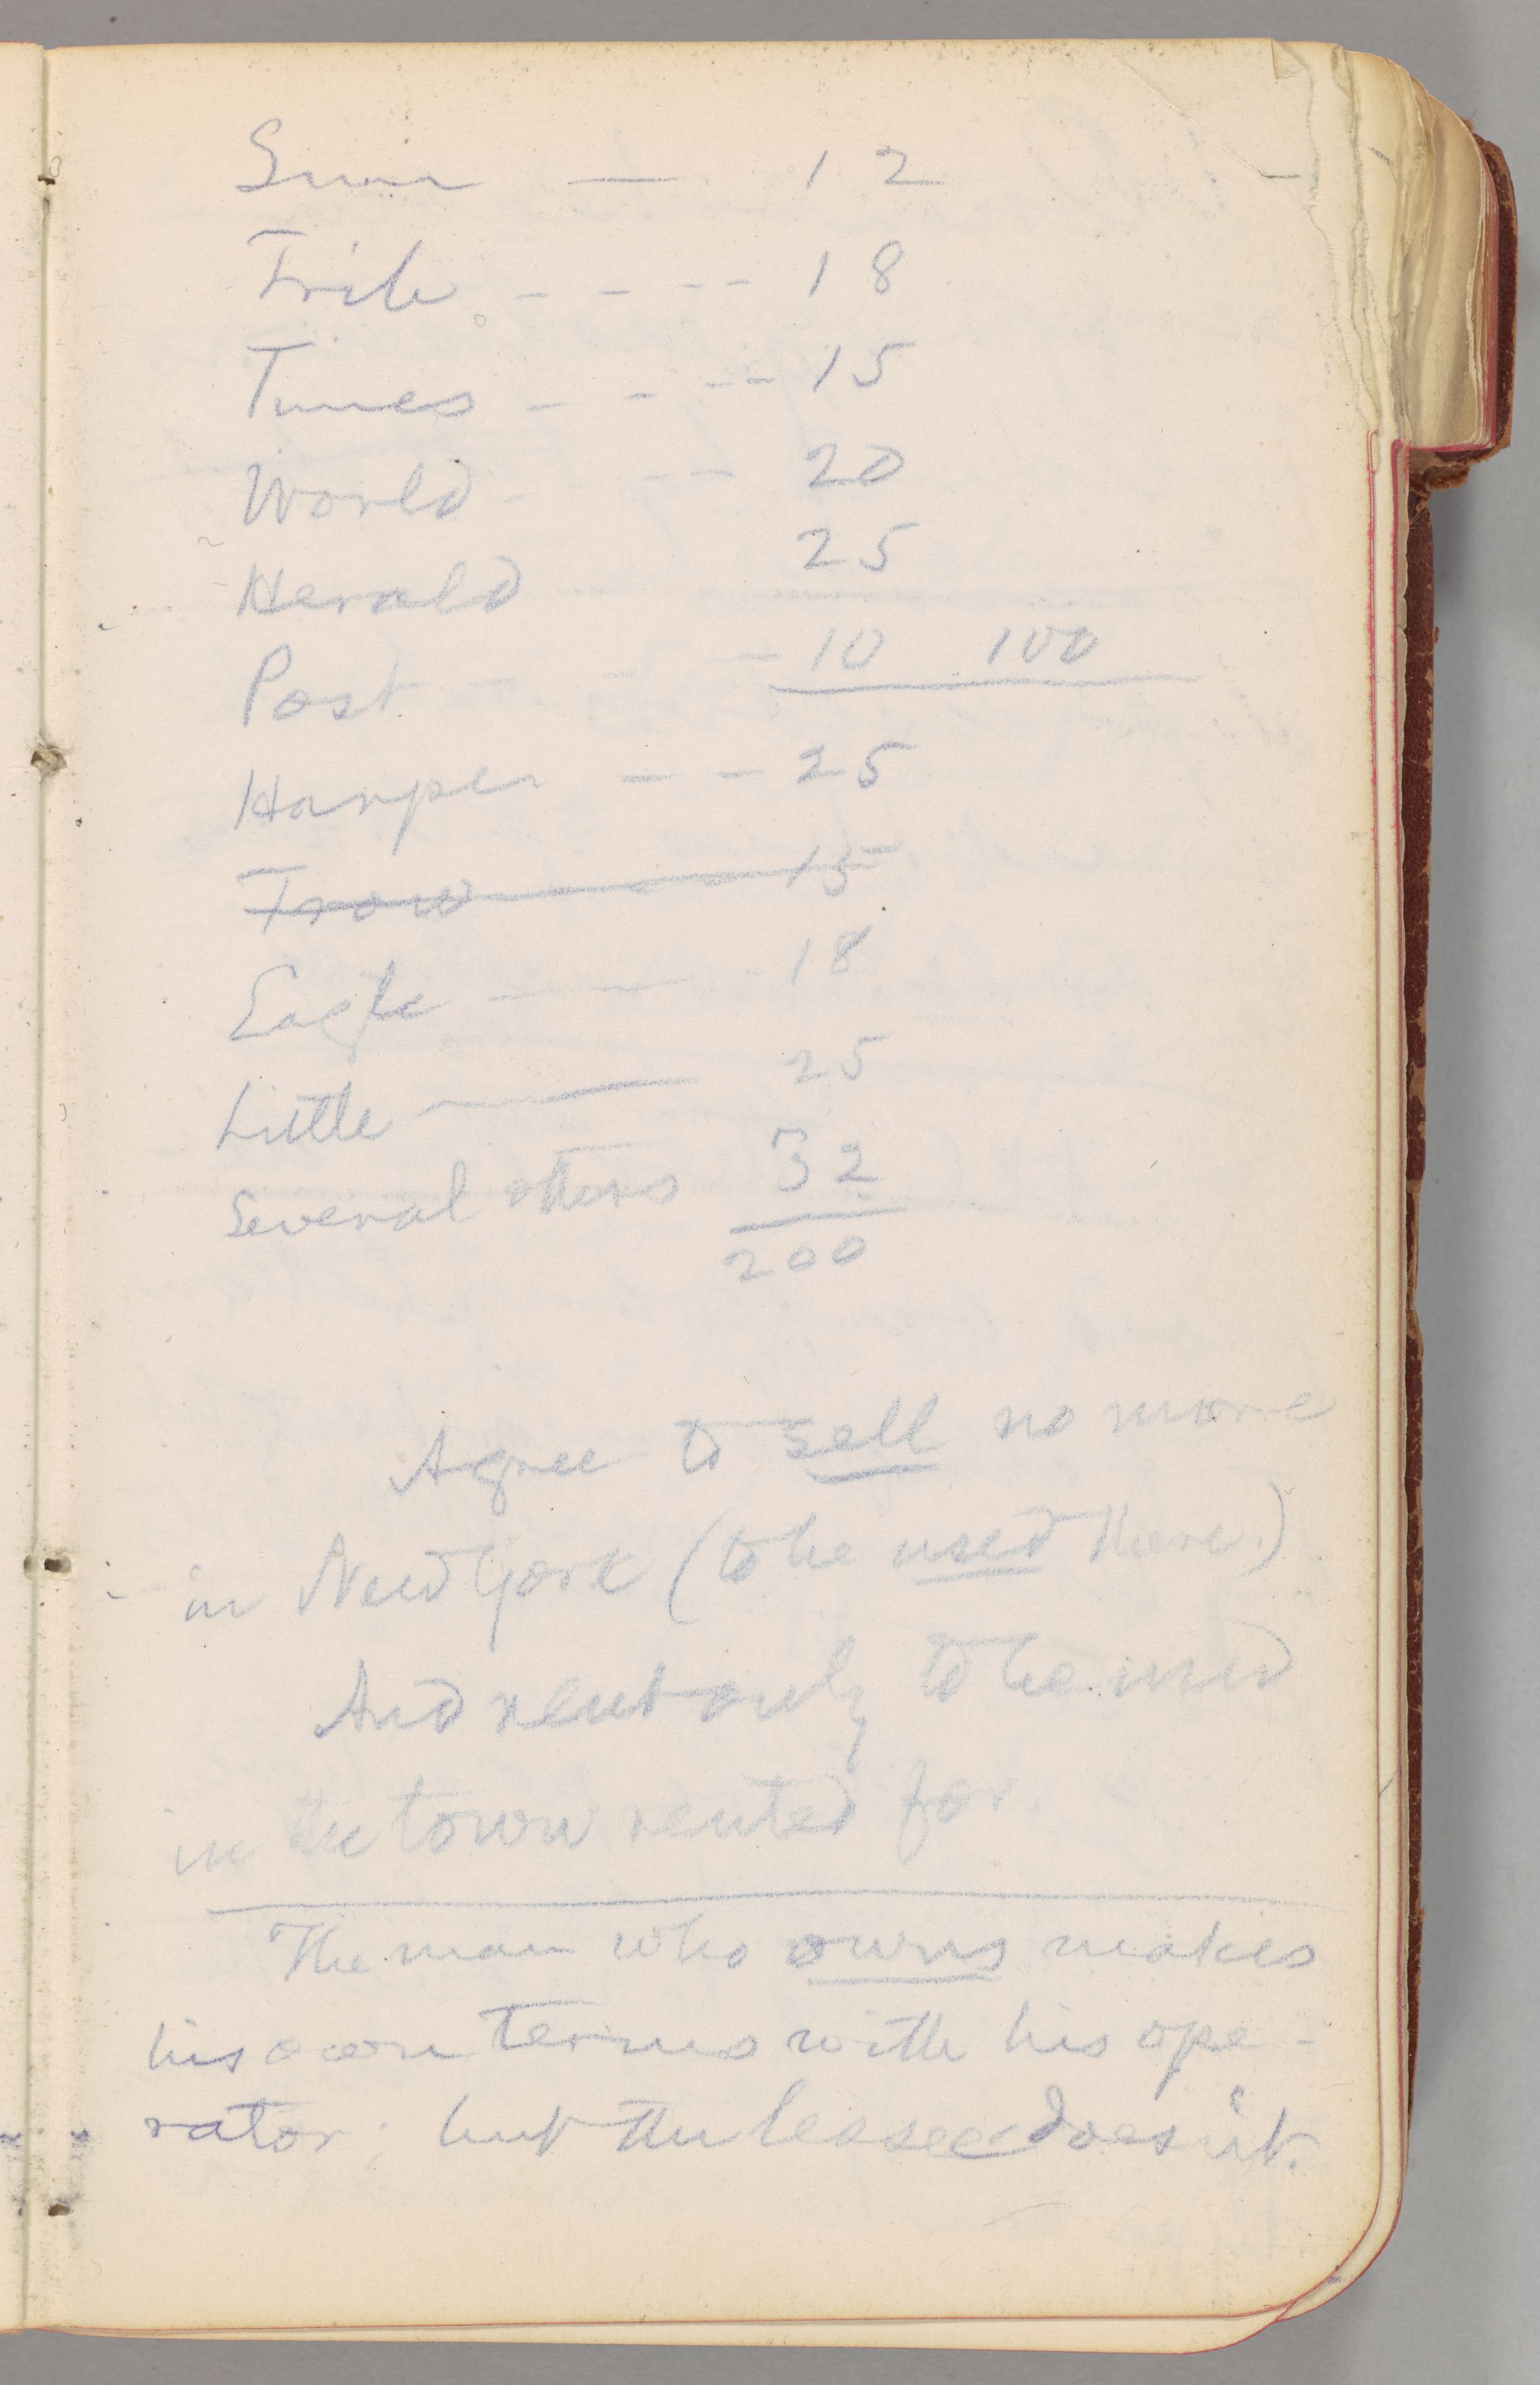 Sun — 12
Trib - - - - 18
Times - - - - 15
World - - - 20
Herald 25
Post - - - 10 100
Harper - - 25
Trow 15
Eagle — — 18
Little — 25
Several others 32
200
Agree to sell no more
in New York (to be used there.)
And rent only to be used
in the town rented for.
The man who owns makes
his own terms with his ope-
rator; but the lessee doesn't.